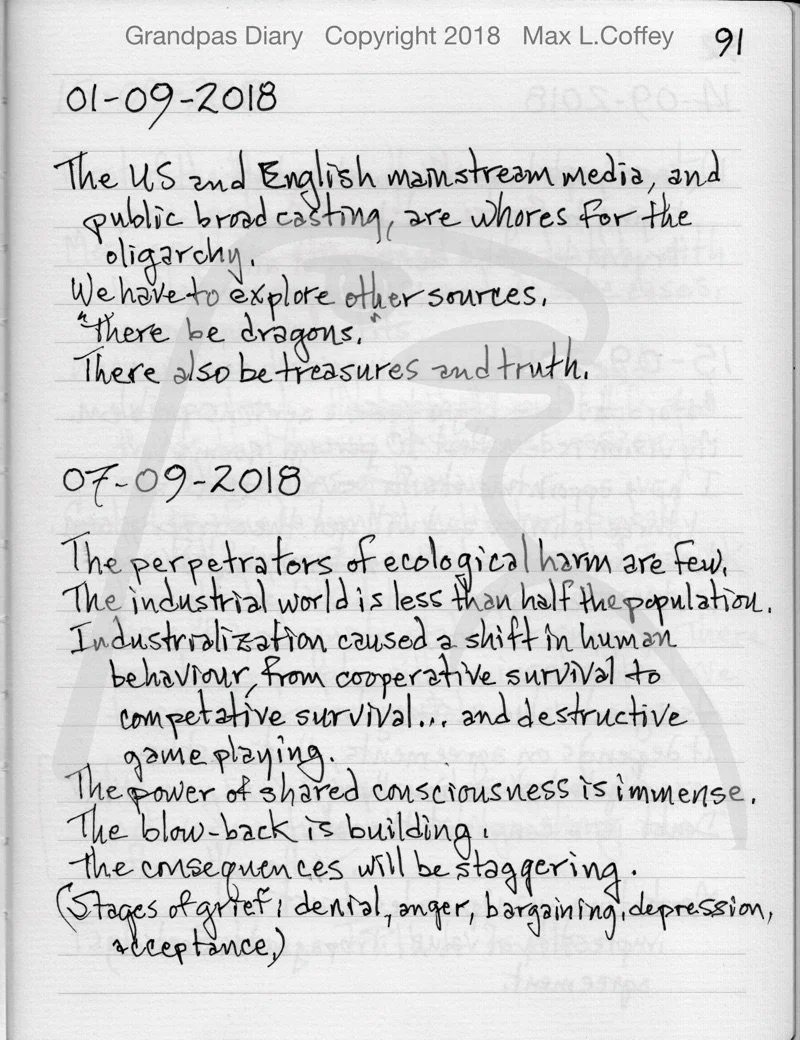 Grandpas Diary Copyright 2018 Max L.Coffey 91
01-09-2018
The US and English mainstream media, and
public broadcasting, are whores for the
oligarchy.
We have to explore other sources.
"There be dragons."
There also be treasures and truth.
07-09-2018
The perpetrators of ecological harm are few.
The industrial world is less than half the population.
Industrialization caused a shift in human
behaviour, from cooperative survival to
competative survival... and destructive
game playing.
The power of shared consciousness is immense.
The blow-back is building.
The consequences will be staggering.
(Stages of grief; denial, anger, bargaining, depression,
acceptance,)